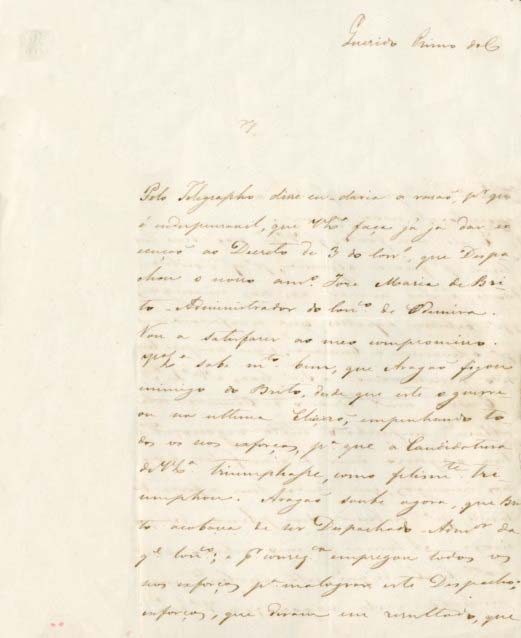 Querido Primo do C
Pelo Telegrapho disse eu daria a rasão, pr. que
é indispensavel, que Vha. faça já já dar ex
cução ao Decreto de 3 do corr., que Despa
chou o nosso amo. José Maria de Bri
to Administrador do Conco. de
Vou a satisfazer ao meu compromisso.
Vha. sabe mto. bem, que Aragão ficou
inimigo do Brito, desde que este o guerre
ou na ultima Eleição, empenhando to
dos os seos esforços, pa. que a Candidatura
de Vha. triumphasse, como felismte. tri
umphou. Aragão soube agora, que Bri
to acabava de ser Despachado Admor. da
qle. Conco.; e pr. conseqa. empregou todos os
seus esforços pa. malograr este Despacho,
esforços, que deram em resultado, que